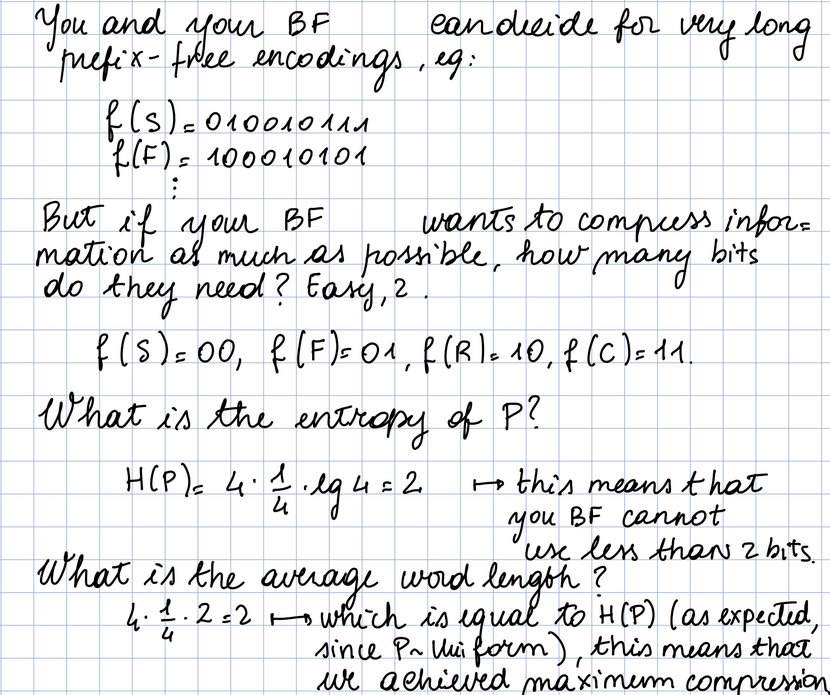 You and your BF can decide for very long
prefix-free encodings, eg:
f(S)= 010010111
f(F)= 100010101
⋮
But if your BF wants to compress infor=
mation as much as possible, how many bits
do they need? Easy, 2.
f(S)=00, f(F)=01, f(R)=10, f(C)=11.
What is the entropy of P?
H(P)= 4 · 1/4 · lg 4 = 2 ↦ this means that
you BF cannot
use less than 2 bits.
What is the average word length?
4 · 1/4 · 2 = 2 ↦ which is equal to H(P) (as expected,
since P~Uniform), this means that
we achieved maximum compression